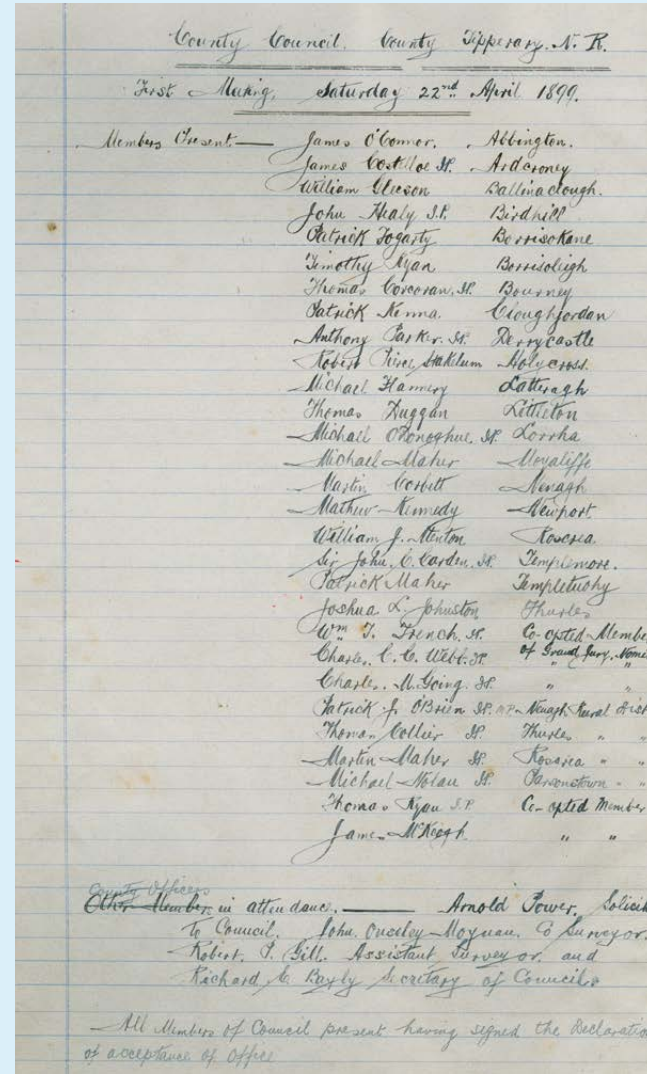 County Council. County Tipperary. N. R.
First Meeting, Saturday 22nd April 1899.
Members Present — James O'Connor. Abbington.
James Costelloe JP. Ardcroney
William Gleeson Ballinaclough.
John Healy J.P. Birdhill
Patrick Fogarty Borrisokane
Timothy Ryan Borrisoleigh
Thomas Corcoran. JP. Bourney
Patrick Kenna. Cloughjordan
Anthony Parker. JP. Derrycastle
Robert Pierce Stakelum Holycross.
Michael Flannery Latteragh
Thomas Duggan Littleton
Michael O'Donoghue. JP. Lorrha
Michael Maher Moyaliffe
Martin Corbett Nenagh
Mathew Kennedy Newport.
William J. Menton Roscrea
Sir John. C. Carden. JP. Templemore.
Patrick Maher Templetuohy
Joshua L. Johnston Thurles
Wm T. French. JP. Co-opted Membe
Charles. C. C. Webb. JP. of Grand Jury. Nome
Charles. M. Going. JP. " "
Patrick J. O'Brien JP. M.P. Nenagh Rural Dist
Thomas Collier JP. Thurles " "
Martin Maher JP. Roscrea " "
Michael Nolan JP. Parsonstown " "
Thomas Ryan J.P. Co-opted Member
James McKeogh. " "
County Officers
Other Member in attendance. — Arnold Power. Solicit
to Council. John Ouseley Moynan. Co Surveyor.
Robert. P. Gill. Assistant Surveyor. and
Richard C Bayly Secretary of Council.
All Members of Council present having signed the Declaratio
of acceptance of Office